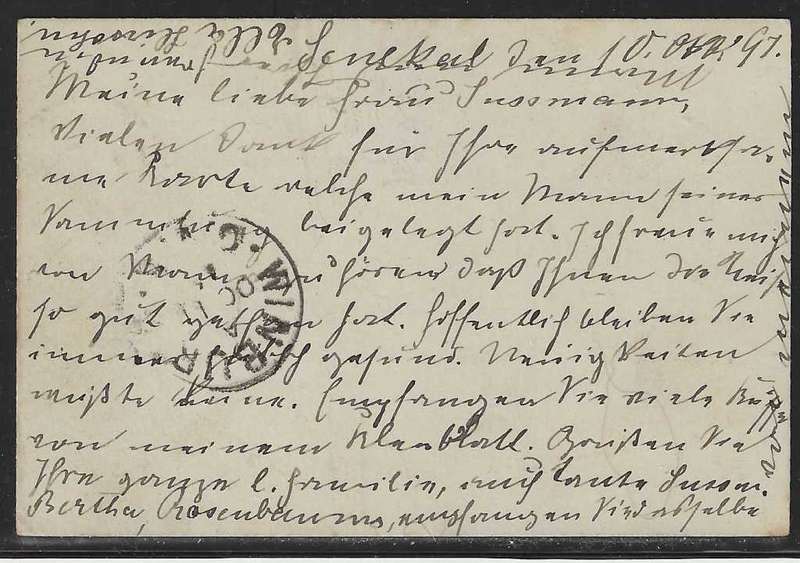 Senekal den 10. Okt. 97.
Meine liebe Frau Sussmann,
Vielen Dank für Ihre aufmerksa-
me Karte welche mein Mann seiner
Sammlung beigelegt hat. Ich freue mich
von Mann zu hören daß Ihnen die Reise
so gut gethan hat. Hoffentlich bleiben Sie
immer gesund. Neuigkeiten
wüßte keine. Empfangen Sie viele
von meinem Kleeblatt. Grüßen Sie
Ihre ganze l. Familie, auch Tante Sussm.
Bertha, Rosenbaums, empfangen Sie dasselbe
von
Ella Hirschn
WINBURG
OC